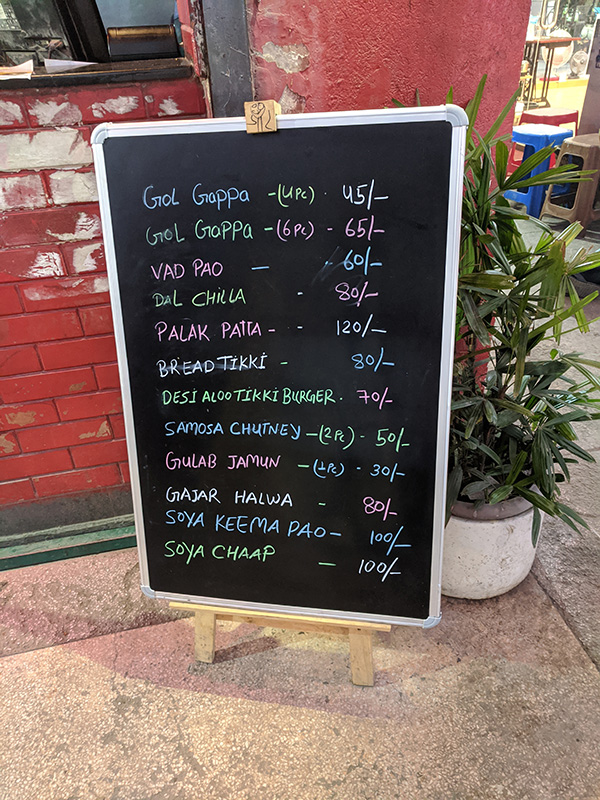 GOL GAPPA -(4Pc) - 45/-
GOL GAPPA -(6Pc) - 65/-
VAD PAO — - 60/-
DAL CHILLA - 80/-
PALAK PATTA - - 120/-
BREAD TIKKI - 80/-
DESI ALOO TIKKI BURGER - 70/-
SAMOSA CHUTNEY -(2Pc) - 50/-
GULAB JAMUN -(1Pc) - 30/-
GAJAR HALWA - 80/-
SOYA KEEMA PAO - 100/-
SOYA CHAAP — 100/-